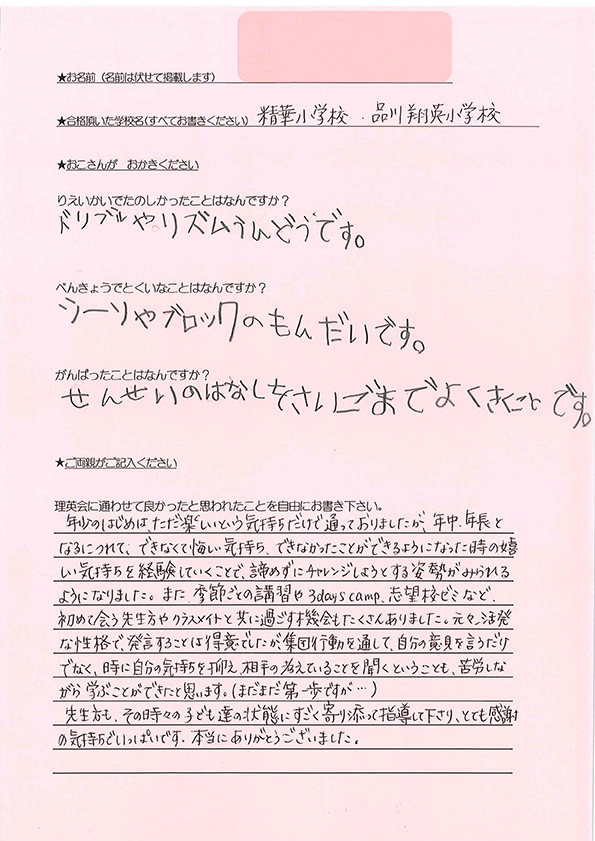 ★お名前（名前は伏せて掲載します）
★合格頂いた学校名(すべてお書きください) 精華小学校 . 品川翔英小学校
★おこさんが おかきください
りえいかいでたのしかったことはなんですか？
ドリブルやリズムうんどうです。
べんきょうでとくいなことはなんですか？
シーソやブロックのもんだいです。
がんばったことはなんですか？
せんせいのはなしをさいごまでよくきくことです。
★ご両親がご記入ください
理英会に通わせて良かったと思われたことを自由にお書き下さい。
年少のはじめは、ただ楽しいという気持ちだけで通っておりましたが、年中、年長と
なるにつれて、できなくて悔しい気持ち、できなかったことができるようになった時の嬉
しい気持ちを経験していくことで、諦めずにチャレンジしようとする姿勢がみられる
ようになりました。また、季節ごとの講習や3days camp、志望校ゼミなど、
初めて会う先生方やクラスメイトと共に過ごす機会もたくさんありました。元々、活発
な性格で、発言することは得意でしたが、集団行動を通して、自分の意見を言うだけ
でなく、時に自分の気持ちを抑え、相手の考えていることを聞くということも、苦労しな
がら学ぶことができたと思います。(まだまだ第一歩ですが…)
先生方も、その時々の子ども達の状態にすごく寄り添って指導して下さり、とても感謝
の気持ちでいっぱいです。本当にありがとうございました。